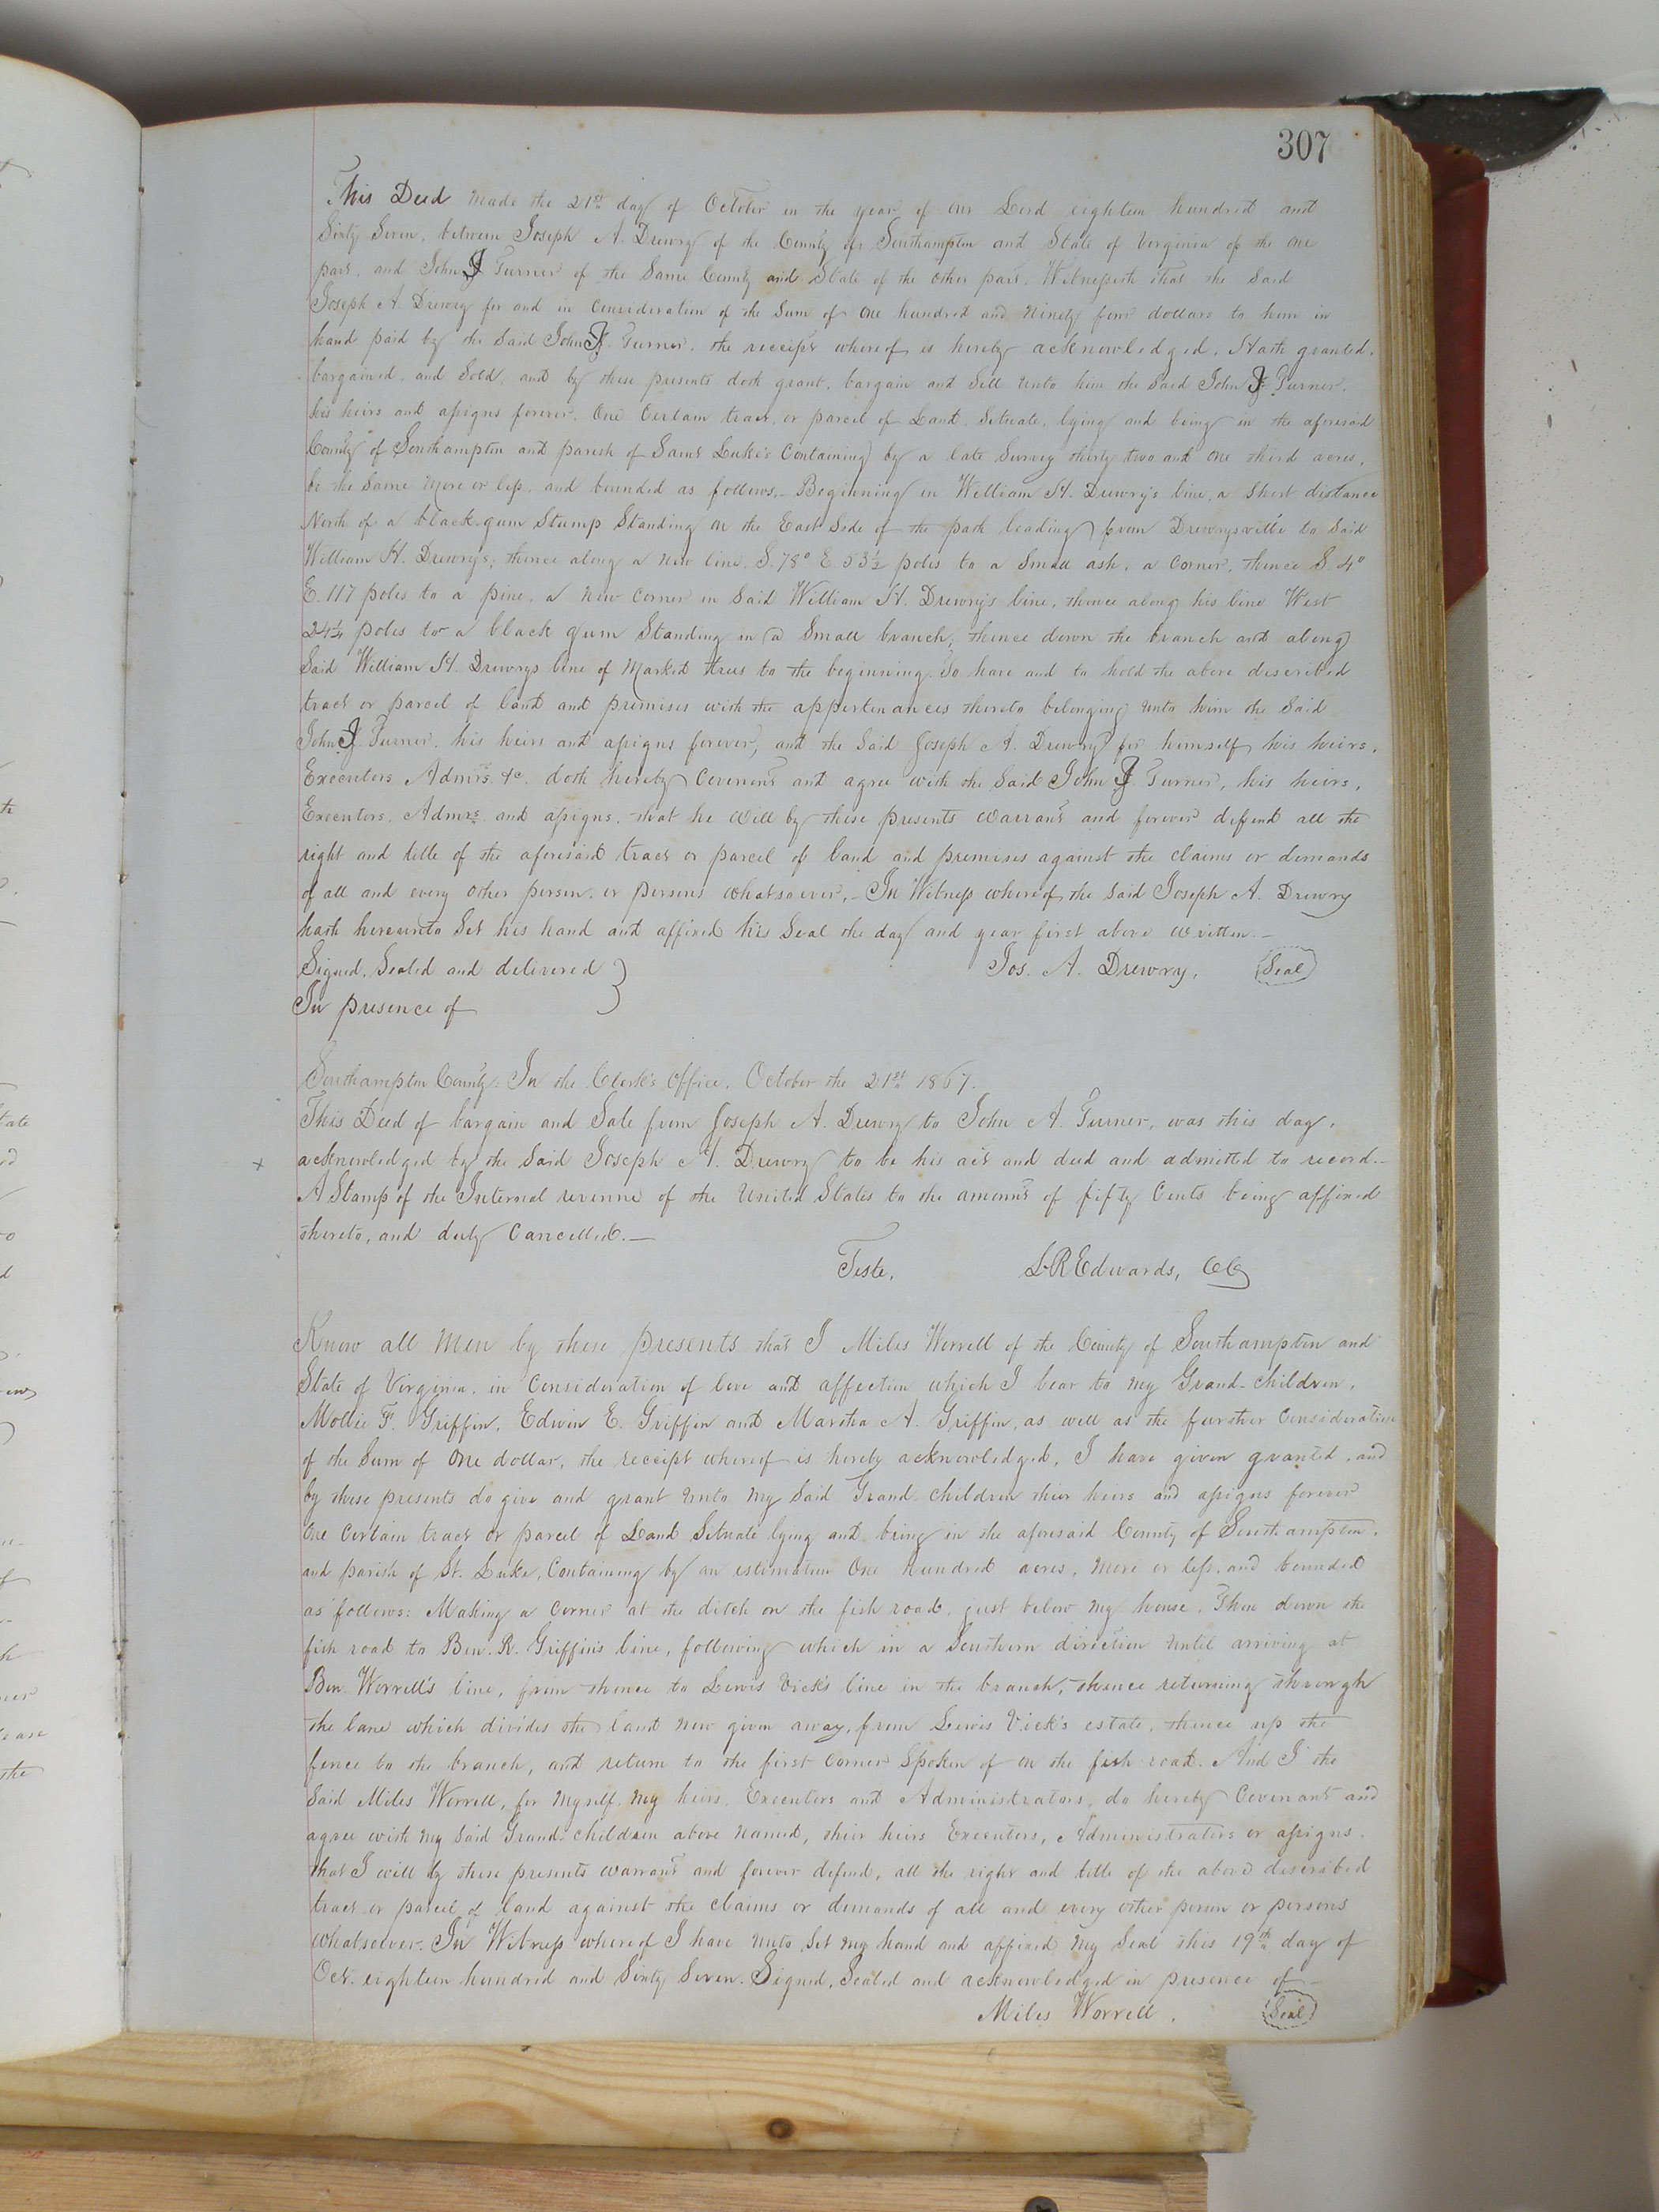 307
This Deed made the 21st day of October in the year of our Lord eighteen hundred and
Sixty Seven, between Joseph A. Drewry of the County of Southampton and State of Virginia of the one
part, and John J Turner of the Same County and State of the other part, Witnesseth that the Said
Joseph A. Drewry for and in Consideration of the Sum of One hundred and Ninety four dollars to him in
hand paid by the Said John J. Turner, the receipt whereof is hereby acknowledged, Hath granted,
bargained, and Sold, and by these presents doth grant, bargain and Sell unto him the Said John J. Turner,
his heirs and assigns forever, One Certain tract, or parcel of Land, Situate, lying and being in the aforesaid
County of Southampton and parish of Saint Luke's Containing by a late Survey thirty two and one third acres,
be the Same more or less, and bounded as follows,- Beginning in William H. Drewry's line, a Short distance
North of a black-gum Stump Standing on the East Side of the path leading from Drewrysville to Said
William H. Drewry's; thence along a new line, S. 78° E. 53½ poles to a Small ash, a Corner, thence S. 4°
E. 117 poles to a pine, a new Corner in Said William H. Drewry's line, thence along his line West
24¼ poles to a black gum Standing in a Small branch, thence down the branch and along
Said William H. Drewrys line of Marked trees to the beginning. To have and to hold the above described
tract or parcel of land and premises with the appertenances thereto belonging unto him the Said
John J. Turner, his heirs and assigns forever, and the Said Joseph A. Drewry for himself, his heirs,
Executors Admrs. &c. doth hereby Covenent and agree with the Said John J. Turner, his heirs,
Executors, Admrs. and assigns, that he will by these presents warrant and forever defend all the
right and title of the aforesaid tract or parcel of land and premises against the claims or demands
of all and every other person, or persons whatsoever,- In Witness whereof, the Said Joseph A. Drewry
hath hereunto Set his hand and affixed his Seal the day and year first above written.-
Signed, Sealed and delivered } Jos. A. Drewry, (Seal)
In presence of
Southampton County: In the Clerk's Office, October the 21st 1867.
This Deed of bargain and Sale from Joseph A. Drewry to John A. Turner, was this day,
x acknowledged by the Said Joseph A. Drewry to be his act and deed and admitted to record.-
A Stamp of the Internal revenue of the United States to the amount of fifty Cents being affixed
thereto, and duly Cancelled.-
Teste, L R Edwards, CC
Know all Men by these presents that I Miles Worrell of the County of Southampton and
State of Virginia, in Consideration of love and affection which I bear to my Grand-children,
Mollie F. Griffin, Edwin E. Griffin and Martha A. Griffin, as well as the further Consideration
of the Sum of One dollar, the receipt whereof is hereby acknowledged, I have given granted, and
by these presents do give and grant unto my Said Grand-children their heirs and assigns forever
One Certain tract or parcel of Land Situate lying and being in the aforesaid County of Southampton,
and parish of St. Luke, Containing by an estimation One hundred acres, more or less, and bounded
as follows: Making a Corner at the ditch on the fish road, just below my house, Then down the
fish road to Ben. R. Griffin's line, following which in a Southern direction until arriving at
Ben Worrell's line, from thence to Lewis Vick's line in the branch, thence returning through
the lane which divides the land now given away, from Lewis Vick's estate, thence up the
fence to the branch, and return to the first Corner Spoken of on the fish-road. And I the
Said Miles Worrell, for myself, my heirs, Executors and Administrators, do hereby Covenant and
agree with my Said Grand-children above Named, their heirs Executors, Administrators or assigns,
that I will by these presents warrant and forever defend, all the right and title of the above described
tract or parcel of land against the claims or demands of all and every other person or persons
whatsoever. In Witness whereof I have unto Set my hand and affixed my Seal this 19th day of
Oct. eighteen hundred and Sixty Seven. Signed, Sealed and acknowledged in presence of-
Miles Worrell. (Seal)